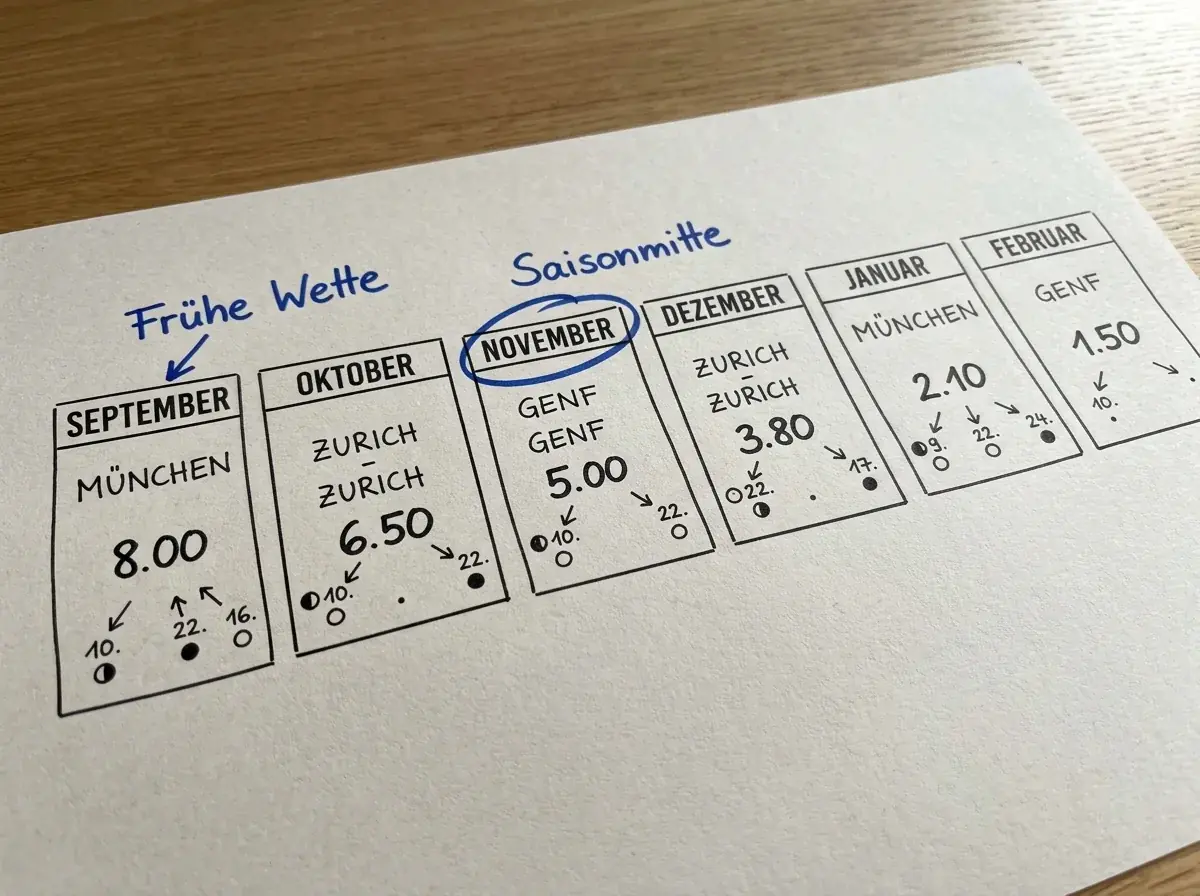 Frühe Wette
Saisonmitte
SEPTEMBER
MÜNCHEN
8.00
10.
22.
16.
OKTOBER
ZURICH
–
ZURICH
6.50
10.
22.
NOVEMBER
GENF
GENF
5.00
10.
22.
DEZEMBER
ZURICH
–
ZURICH
3.80
22.
17.
JANUAR
MÜNCHEN
2.10
9.
22.
24.
FEBRUAR
GENF
1.50
10.